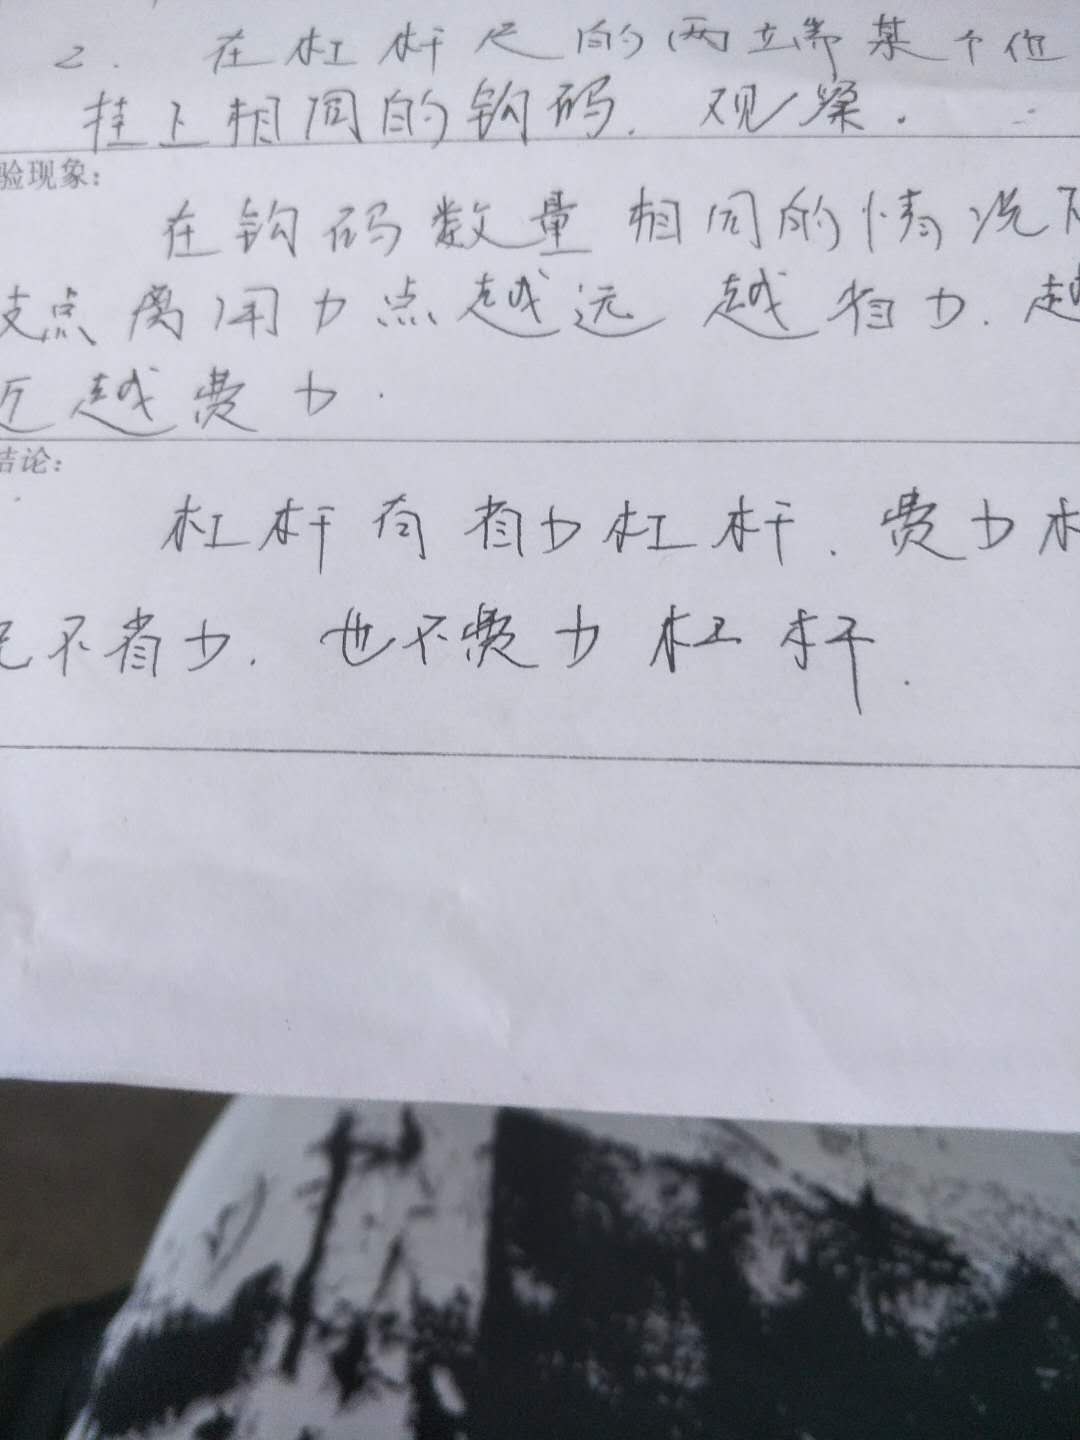 2. 在杠杆尺的两端某个位
挂上相同的钩码. 观察.
验现象:
在钩码数量相同的情况下
支点离用力点越远越省力. 越
近越费力.
结论:
杠杆有省力杠杆. 费力杠
既不省力. 也不费力杠杆.